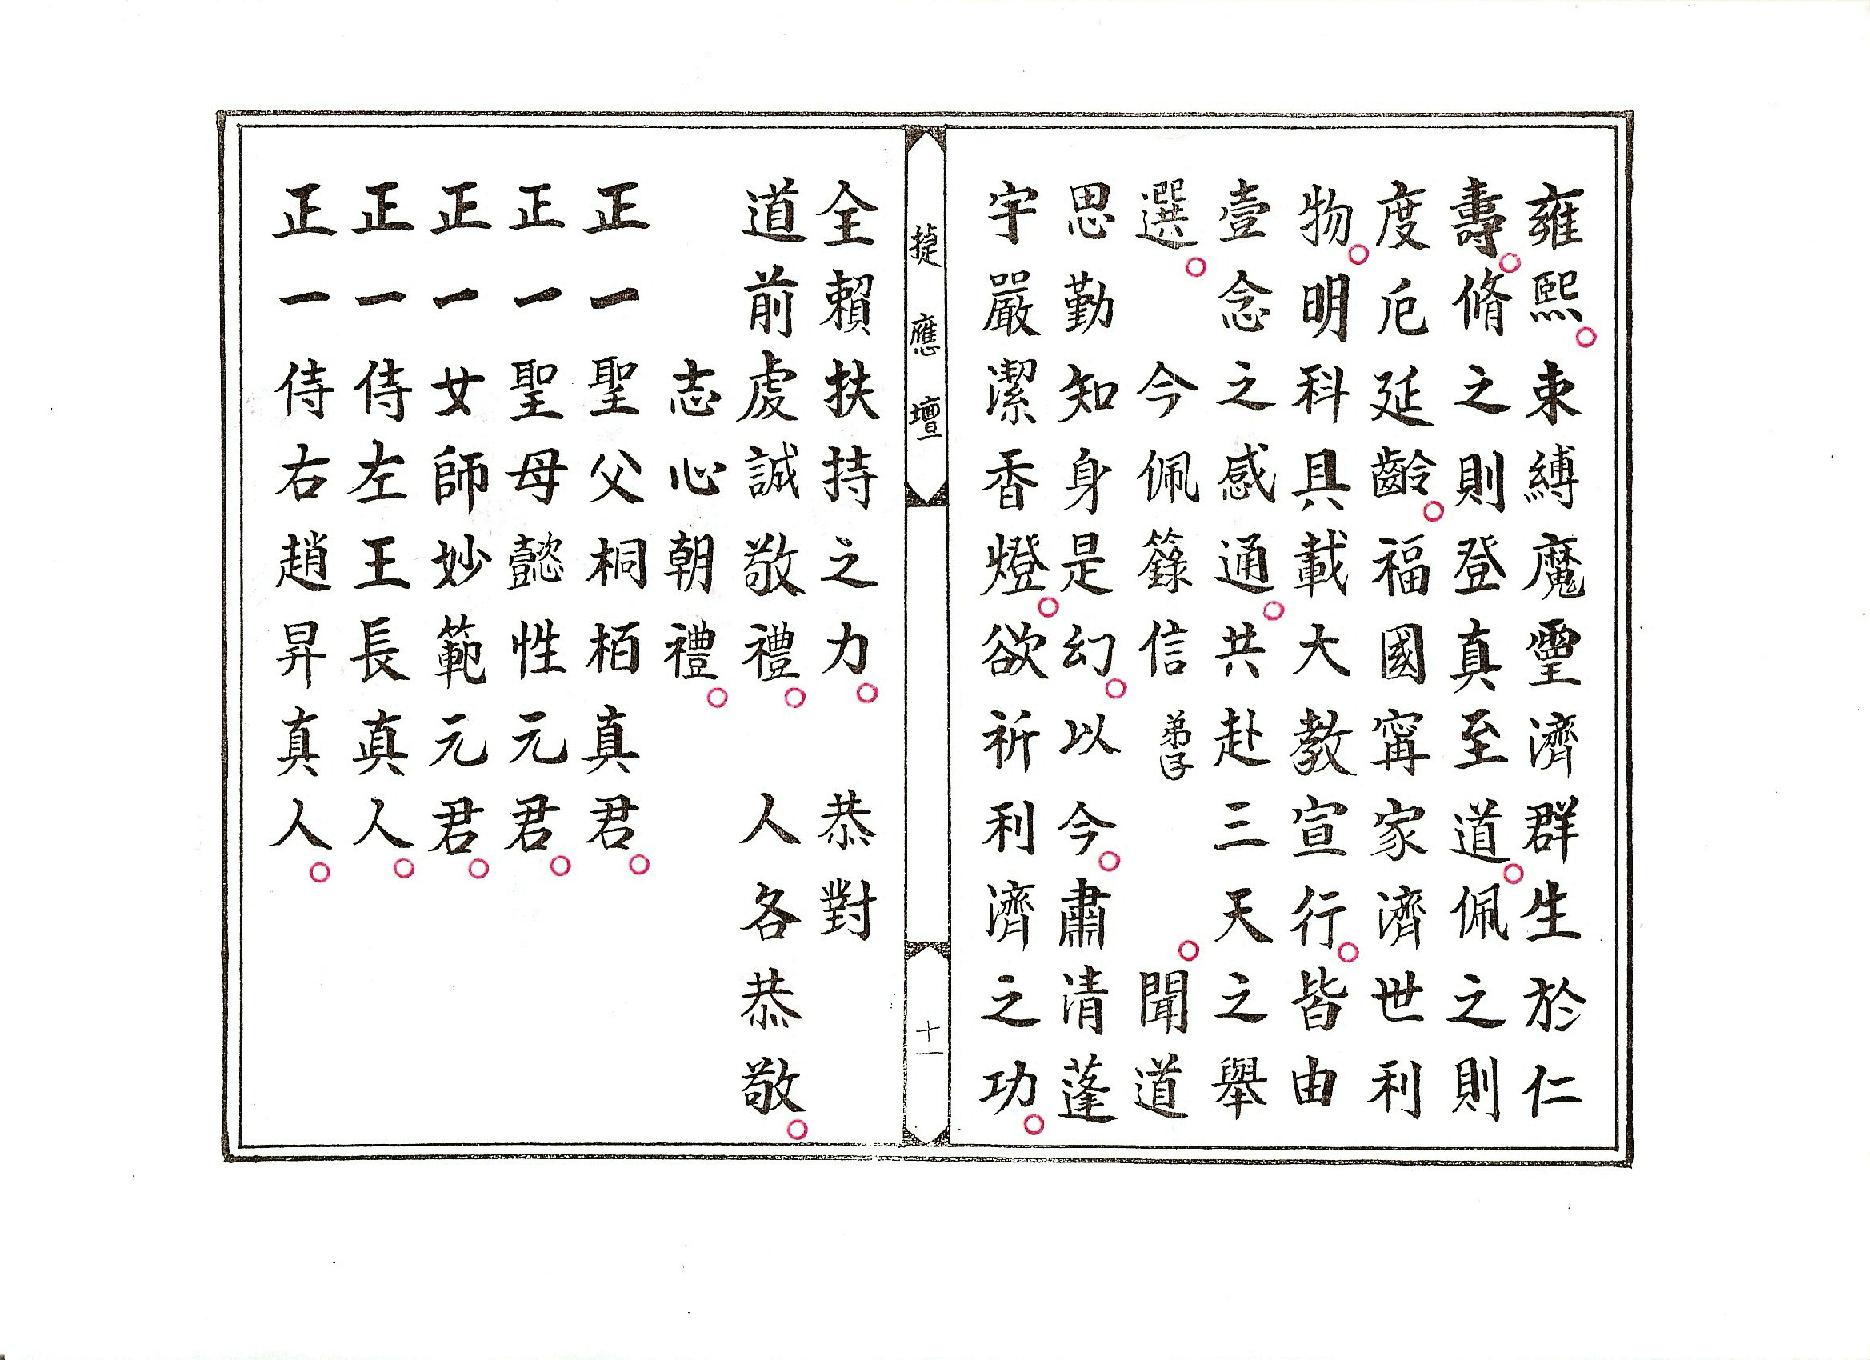 雍熙。束縛魔靈濟群生於仁
壽。脩之則登真至道。佩之則
度厄延齡。福國甯家濟世利
物。明科具載大教宣行。皆由
壹念之感通。共赴三天之舉
選。 今佩籙信 弟子 。聞道
思勤知身是幻。以今。肅清蓬
宇嚴潔香燈。欲祈利濟之功。
捷應壇
十一
全賴扶持之力。 恭對
道前虔誠敬禮。 人各恭敬。
志心朝禮。
正一聖父桐栢真君。
正一聖母懿性元君。
正一女師妙範元君。
正一侍左王長真人。
正一侍右趙昇真人。